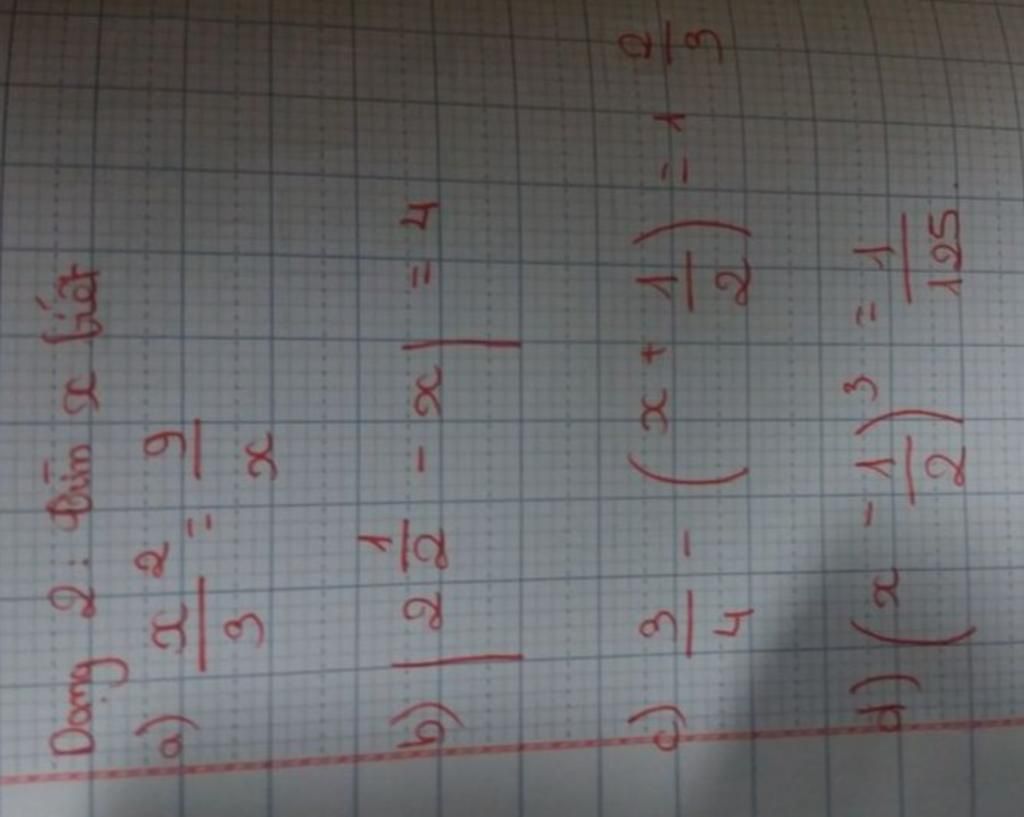 Dạng 2: tìm x biết
a) x²/3 = 9/x
b) |2 1/2 - x| = 4
c) 3/4 - (x + 1/2) = 1 2/3
d) (x - 1/2)³ = 1/125